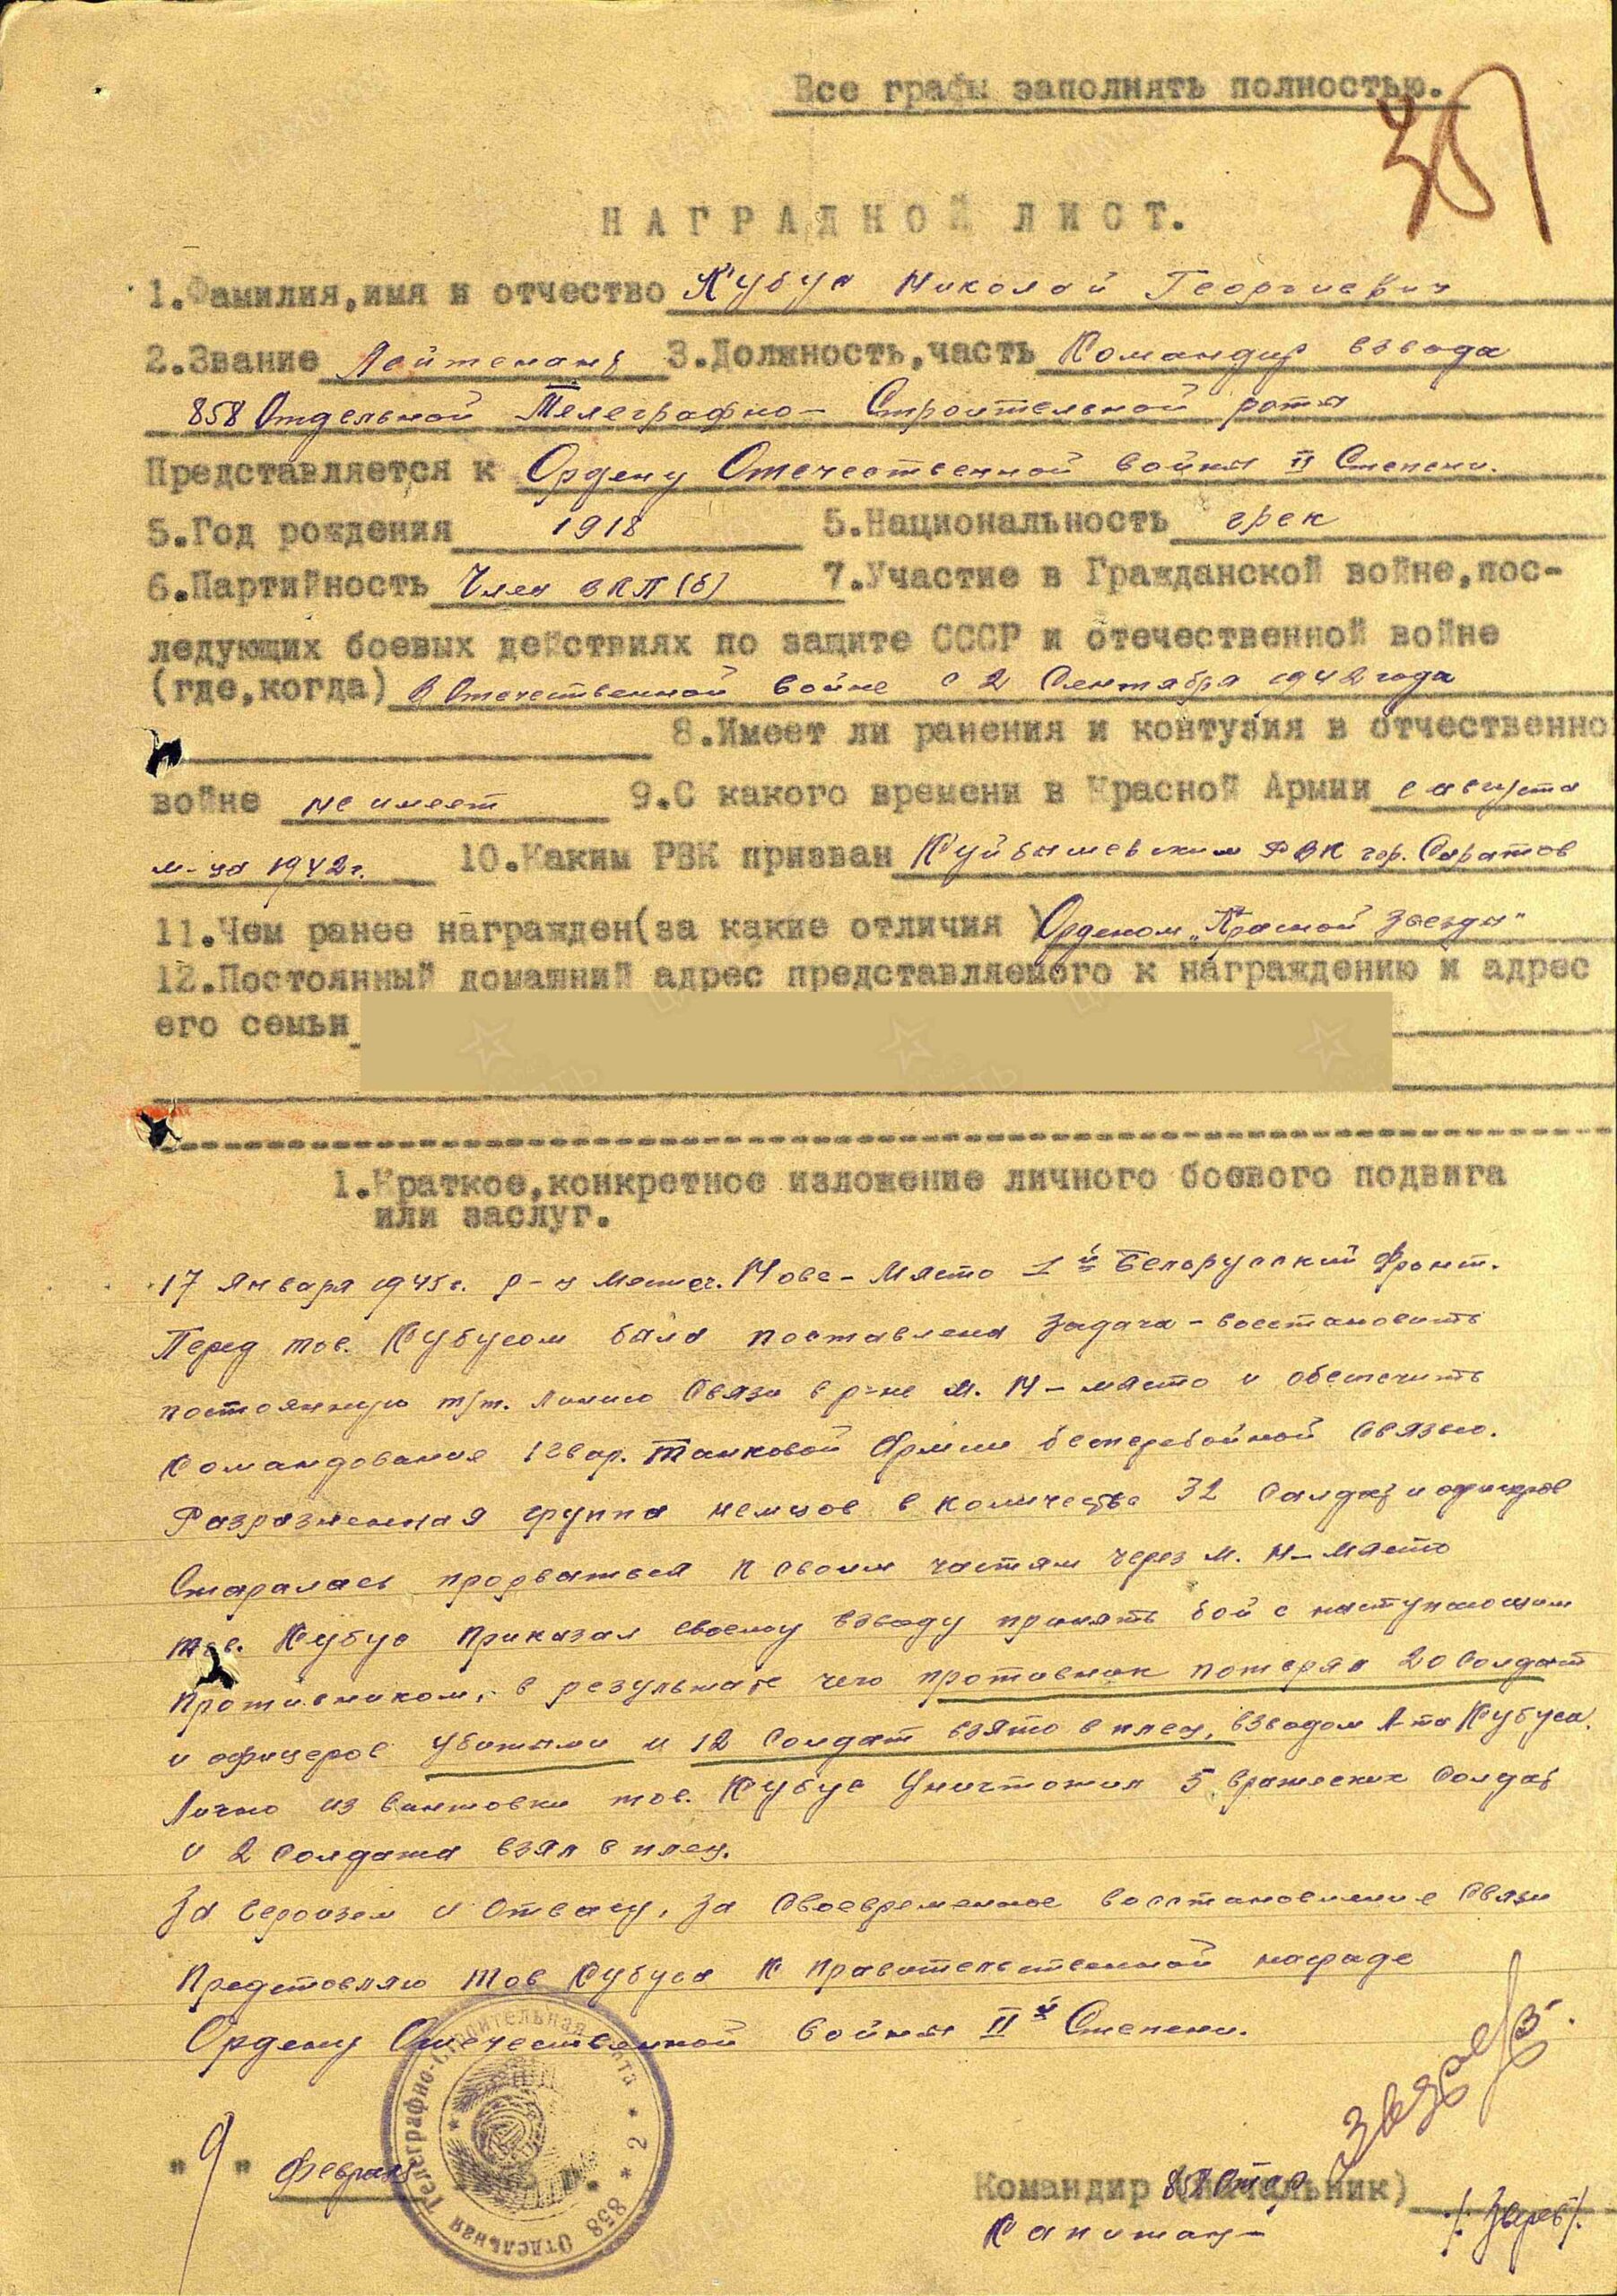 Все графы заполнять полностью.
НАГРАДНОЙ ЛИСТ.
1.Фамилия,имя и отчество Кубус Николай Георгиевич
2.Звание Лейтенант 3.Должность,часть Командир взвода
858 Отдельной Телеграфно-Строительной роты
Представляется к Ордену Отечественной войны II Степени.
5.Год рождения 1918 5.Национальность грек
6.Партийность Член ВКП(б) 7.Участие в Гражданской войне,пос-
ледующих боевых действиях по защите СССР и отечественной войне
(где,когда) в Отечественной войне с 2 Сентября 1942 года
8.Имеет ли ранения и контузия в отчественно
войне не имеет 9.С какого времени в Красной Армии с августа
м-ца 1942г. 10.Каким РВК призван Куйбышевским РВК гор. Саратов
11.Чем ранее награжден(за какие отличия ) Орденом „Красной Звезды"
12.Постоянный домашний адрес представляемого к награждению и адрес
его семьи
1.Краткое,конкретное изложение личного боевого подвига
или заслуг.
17 января 1945г. р-н Местеч. Нове-Място 1й Белорусский Фронт.
Перед тов. Кубусом была поставлена задача - восстановить
постоянную т/т. линию Связи в р-не м. Н-място и обеспечить
Командование 1 Гвар. Танковой Армии бесперебойной Связью.
Разрозненная группа немцев в количестве 32 Солдат и офицеров
Старалась прорваться к своим частям через м. Н-място
тов. Кубус приказал своему взводу принять бой с наступающим
противником, в результате чего противник потерял 20 Солдат
и офицеров убитыми и 12 Солдат взято в плен, взводом Л-та Кубуса.
Лично из винтовки тов. Кубус уничтожил 5 вражеских Солдат
и 2 Солдата взял в плен.
За героизм и отвагу, за Своевременное восстановление Связи
Представляю тов Кубуса к правительственной награде
Ордену Отечественной войны IIй Степени.
"9" февраля
858 Отдельная Телеграфно-Строительная рота * 2 *
Командир (Начальник) 858 Отср
Капитан - /Зверев/.